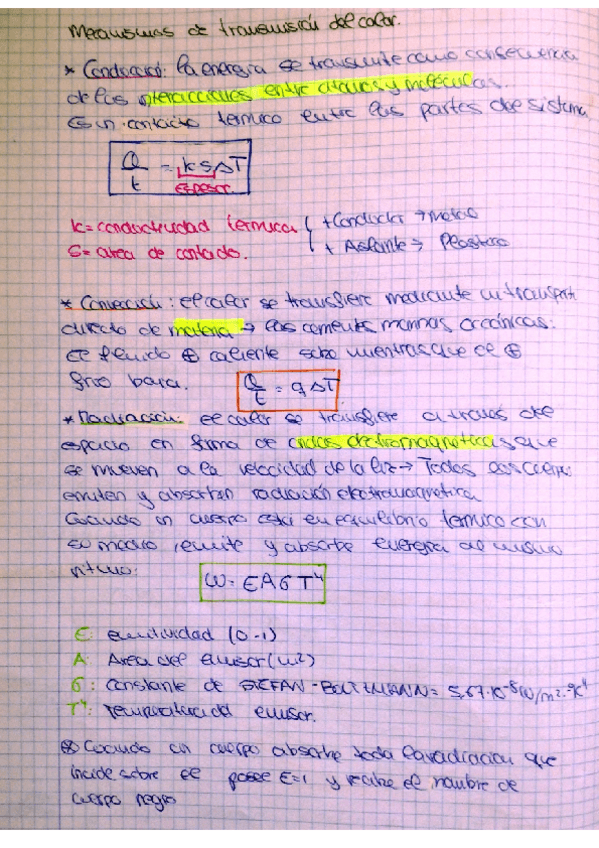 Mecanismos de transmisión del calor.
* Conducción: la energía se transmite como consecuencia
de las interacciones entre átomos y moléculas.
Es un contacto térmico entre las partes del sistema
Q/t = k S ΔT
espesor
k = conductividad térmica { + Conductor → metal
S = área de contacto. + Aislante → Plástico
* Convección: el calor se transfiere mediante un transporte
directo de materia → las corrientes marinas oceánicas:
el fluido ⊕ caliente sube mientras que el ⊕
frío baja. Q/t = q ΔT
* Radiación: el calor se transfiere a través del
espacio en forma de ondas electromagnéticas que
se mueven a la velocidad de la luz → Todos los cuerpos
emiten y absorben radiación electromagnética
Cuando un cuerpo está en equilibrio térmico con
su medio, emite y absorbe energía al mismo
ritmo:
W = E A σ T⁴
E: emitividad (0-1)
A: Área del emisor (m2)
σ: Constante de STEFAN-BOLTZMANN = 5,67·10⁻⁸ W/m²·ºK⁴
T⁴: Temperatura del emisor.
⊗ Cuando un cuerpo absorbe toda la radiación que
incide sobre el posee E=1 y recibe el nombre de
cuerpo negro